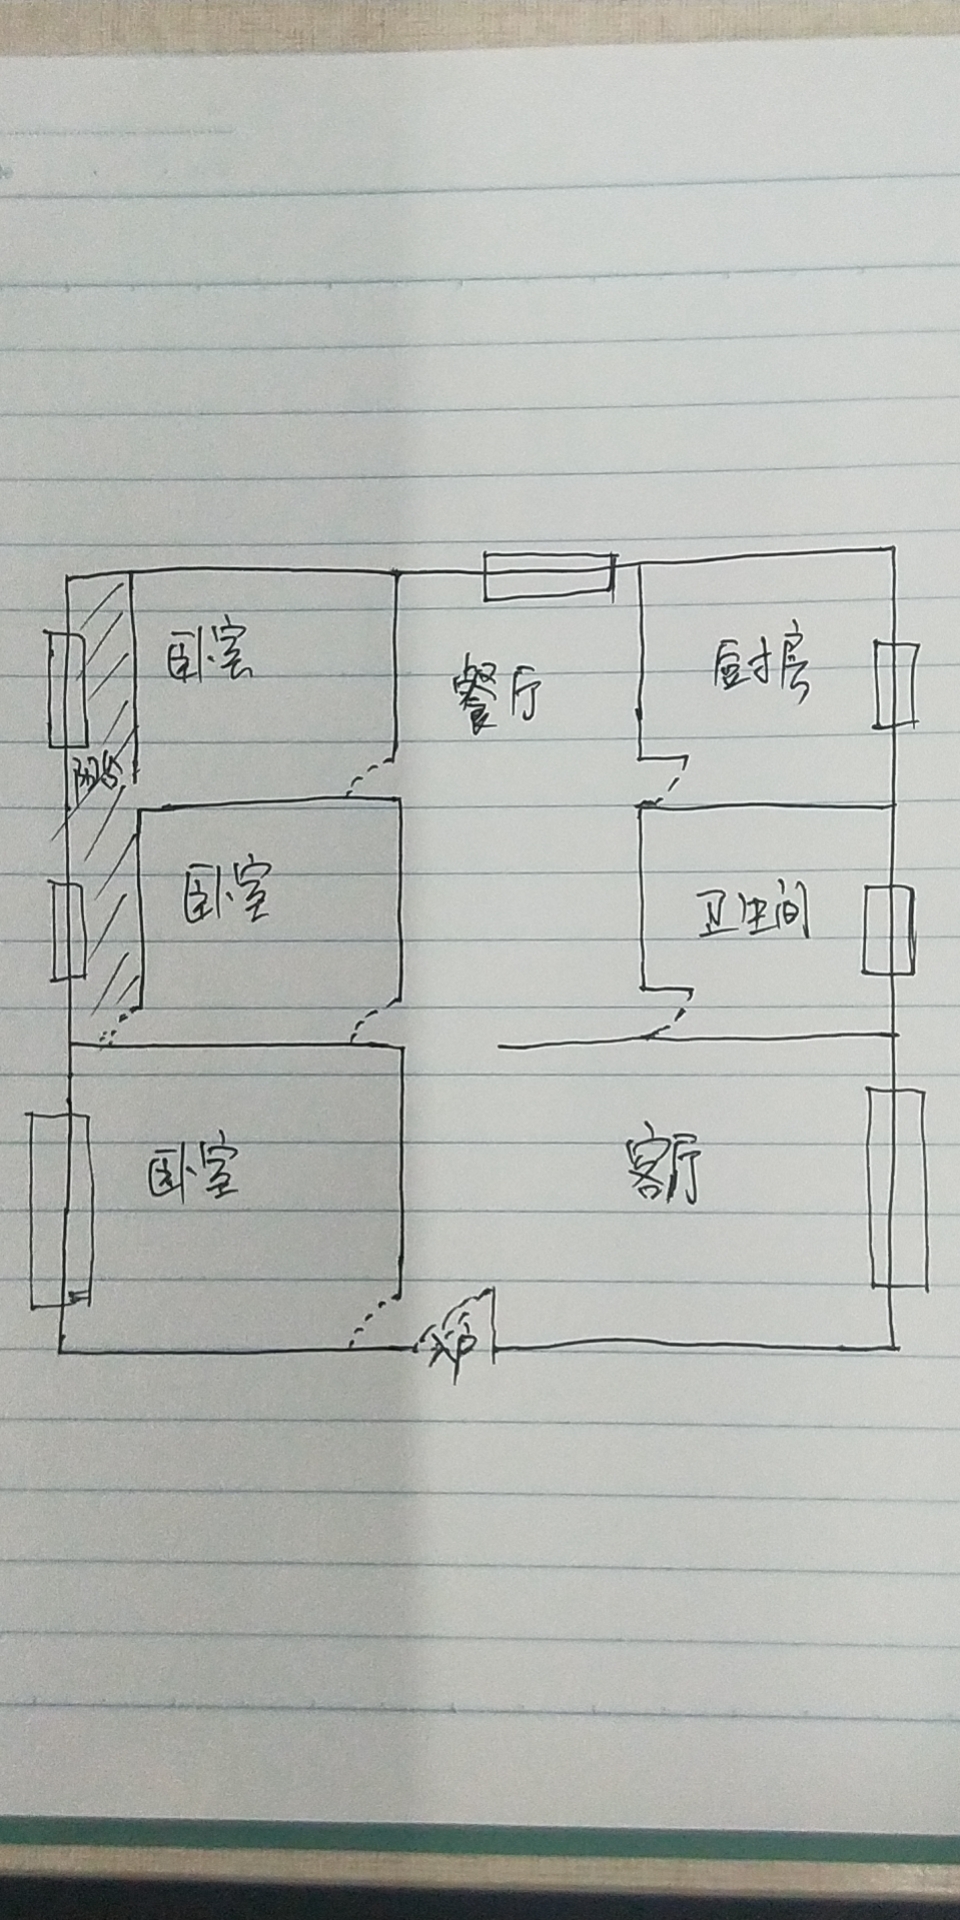 卧室
餐厅
厨房
阳台
卧室
卫生间
卧室
客厅
入户